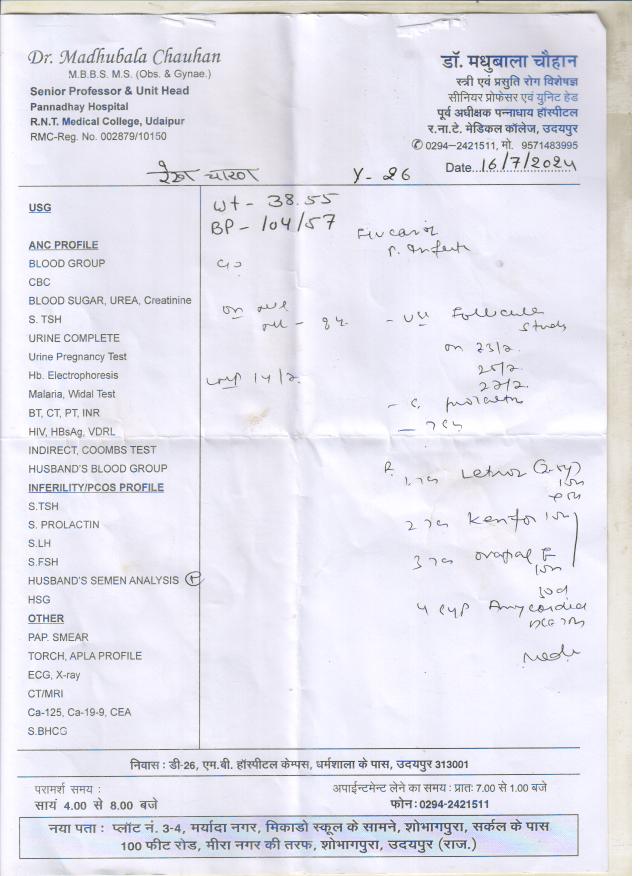 Dr. Madhubala Chauhan
M.B.B.S. M.S. (Obs. & Gynae.)
Senior Professor & Unit Head
Pannadhay Hospital
R.N.T. Medical College, Udaipur
RMC-Reg. No. 002879/10150
डॉ. मधुबाला चौहान
स्त्री एवं प्रसुति रोग विशेषज्ञ
सीनियर प्रोफेसर एवं युनिट हेड
पूर्व अधीक्षक पन्नाधाय हॉस्पीटल
र.ना.टे. मेडिकल कॉलेज, उदयपुर
✆ 0294-2421511, मो. 9571483995
Date...16/7/2024
रेखा चारण Y- 26
USG
wt - 38.55
BP - 104/57
ANC PROFILE
BLOOD GROUP
CBC
BLOOD SUGAR, UREA, Creatinine
S. TSH
URINE COMPLETE
Urine Pregnancy Test
Hb. Electrophoresis
Malaria, Widal Test
BT, CT, PT, INR
HIV, HBsAg, VDRL
INDIRECT, COOMBS TEST
HUSBAND'S BLOOD GROUP
INFERILITY/PCOS PROFILE
S.TSH
S. PROLACTIN
S.LH
S.FSH
HUSBAND'S SEMEN ANALYSIS
HSG
OTHER
PAP. SMEAR
TORCH, APLA PROFILE
ECG, X-ray
CT/MRI
Ca-125, Ca-19-9, CEA
S.BHCG
Follicular
Study
on 23/7
25/7
27/7
LMP 14/7
निवास : डी-26, एम.बी. हॉस्पीटल केम्पस, धर्मशाला के पास, उदयपुर 313001
परामर्श समय :
सायं 4.00 से 8.00 बजे
अपाईन्टमेन्ट लेने का समय : प्रातः 7.00 से 1.00 बजे
फोन : 0294-2421511
नया पता : प्लॉट नं. 3-4, मर्यादा नगर, मिकाडो स्कूल के सामने, शोभागपुरा, सर्कल के पास
100 फीट रोड, मीरा नगर की तरफ, शोभागपुरा, उदयपुर (राज.)